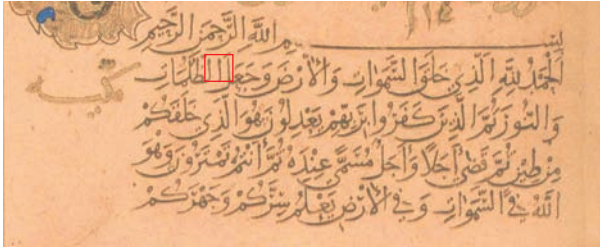 بسم الله الرحمن الرحيم
الحمد لله الذي خلق السموات والأرض وجعل الظلمات
والنور ثم الذين كفروا بربهم يعدلون هو الذي خلقكم
من طين ثم قضى أجلا وأجل مسمى عنده ثم أنتم تمترون وهو
الله في السموات وفي الأرض يعلم سركم وجهركم
مكية